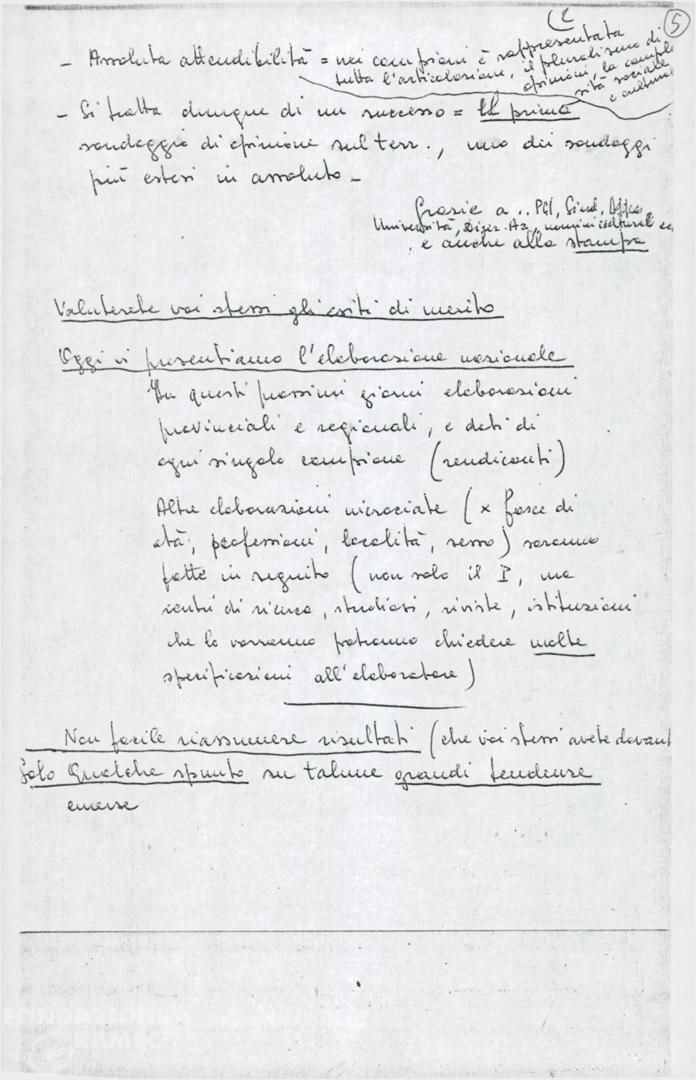 (2
5
- Assoluta attendibilità = nei campioni è rappresentata
tutta l'articolazione, il pluralismo di
opinioni, la comples
sità sociale
e cultural
- Si tratta dunque di un successo = Il primo
sondaggio di opinione sul terr., uno dei sondaggi
più estesi in assoluto -
Grazie a .. PCI, Sind,
Università, Az, culturali ecc
e anche alla stampa
Valuterete voi stessi gli esiti di merito
Oggi vi presentiamo l'elaborazione nazionale
In questi prossimi giorni elaborazioni
provinciali e regionali, e dati di
ogni singolo campione (rendiconti)
Altre elaborazioni incrociate (x fasce di
età, professioni, località, sesso) saranno
fatte in seguito (non solo il I, ma
centri di ricerca, studiosi, riviste, istituzioni
che lo vorranno potranno chiedere molte
specificazioni all'elaboratore)
Non facile riassumere risultati (che voi stessi avete davant
Solo Qualche spunto su talune grandi tendenze
emerse